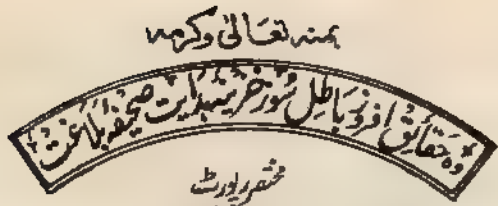 بمنہ تعالیٰ وکرمہ
وہ حقایق افروز باطل سوز خزینہ ہدایت صحیفہ بلاغت
مختصر رپورٹ